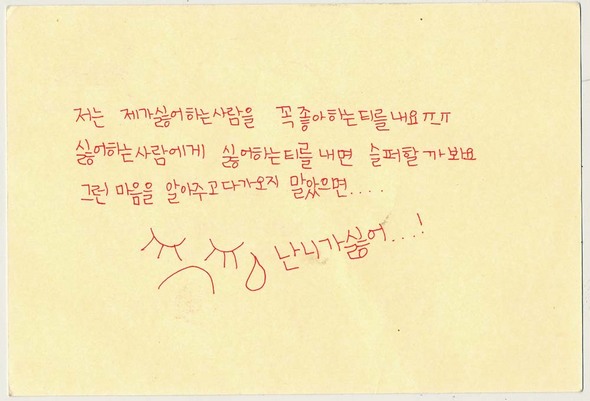 저는 제가싫어하는사람을 꼭좋아하는티를내요ㅠㅠ
싫어하는사람에게 싫어하는티를내면 슬퍼할까봐요
그런마음을 알아주고다가오지 말았으면....
난니가싫어...!